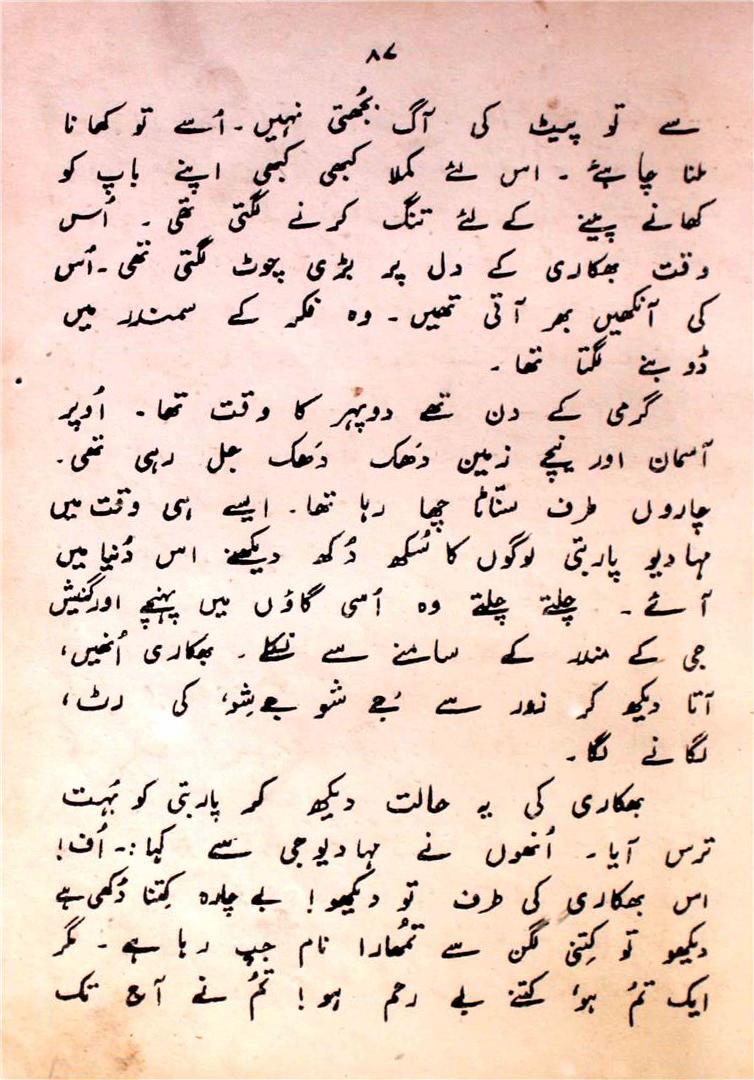 ۸۷
سے تو پیٹ کی آگ بُجھتی نہیں۔ اُسے تو کھانا
ملنا چاہئے ۔ اس لئے کملا کبھی کبھی اپنے باپ کو
کھانے پینے کے لئے تنگ کرنے لگتی تھی ۔ اُس
وقت بھکاری کے دل پر بڑی چوٹ لگتی تھی ۔اُس
کی آنکھیں بھر آتی تھیں ۔ وہ فکر کے سمندر میں
ڈوبنے لگتا تھا ۔
گرمی کے دن تھے دوپہر کا وقت تھا ۔ اُوپر
آسمان اور نیچے زمین دَھک دَھک جل رہی تھی۔
چاروں طرف سنّاٹا چھا رہا تھا۔ ایسے ہی وقت میں
مہادیو پاربتی لوگوں کا سُکھ دُکھ دیکھنے اس دُنیا میں
آئے ۔ چلتے چلتے وہ اُسی گاؤں میں پہنچے اور گنیش
جی کے مندر کے سامنے سے نکلے ۔ بھکاری اُنھیں،
آتا دیکھ کر زور سے ’جے شو جے شِو‘ کی رٹ،
لگانے لگا۔
بھکاری کی یہ حالت دیکھ کر پاربتی کو بُہت
ترس آیا۔ اُنھوں نے مہادیوجی سے کہا:۔ اُف!
اس بھکاری کی طرف تو دیکھو! بے چارہ کِتنا دُکھی ہے
دیکھو تو کِتنی لگن سے تمُھارا نام جپ رہا ہے ۔ مگر
ایک تمُ ہو، کتنے بے رحم ہو! تمُ نے آج تک